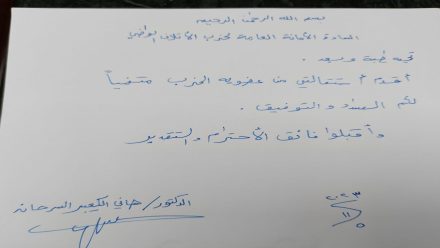 بسم الله الرحمن الرحيم
السادة الأمانة العامة لحزب الأئتلاف الوطني
تحية طيبة وبعد .
أقدم أستقالتي من عضوية الحزب متمنياً
لكم السداد والتوفيق .
وأقبلوا فائق الأحترام والتقدير
الدكتور/ هاني الكعيبر السرحان
٢٠٢٣
١١
٥